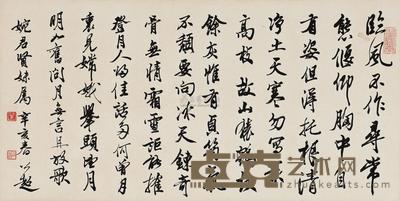 臨風不作尋常
態偃仰胸中自
有姿但得托根清
淨土天寒勿寫
高枝故山猿
餘灰惟有貞筠
不翻要向冰天鍊奇
骨無情霜雪詎能摧
登月人歸佳話多何曾月
裏見嫦娥舉頭望月
明如舊問月無言且放歌
婉君賢妹屬 辛亥春 公超